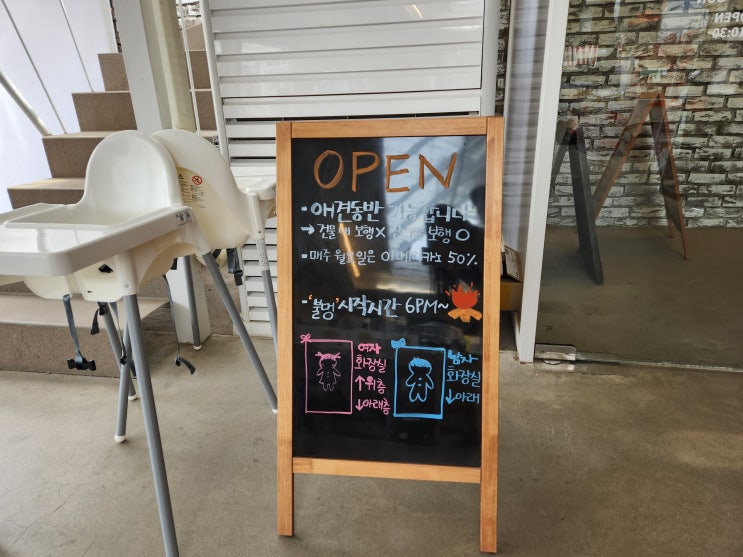 OPEN
· 애견동반 가능합니다
→ 건물 내 보행X 보행 O
· 매주 월요일은 아메리카노 50%
· '불멍' 시작시간 6PM~
여자
화장실
↑위층
↓아래층
남자
화장실
↓아래
OPEN
10:30